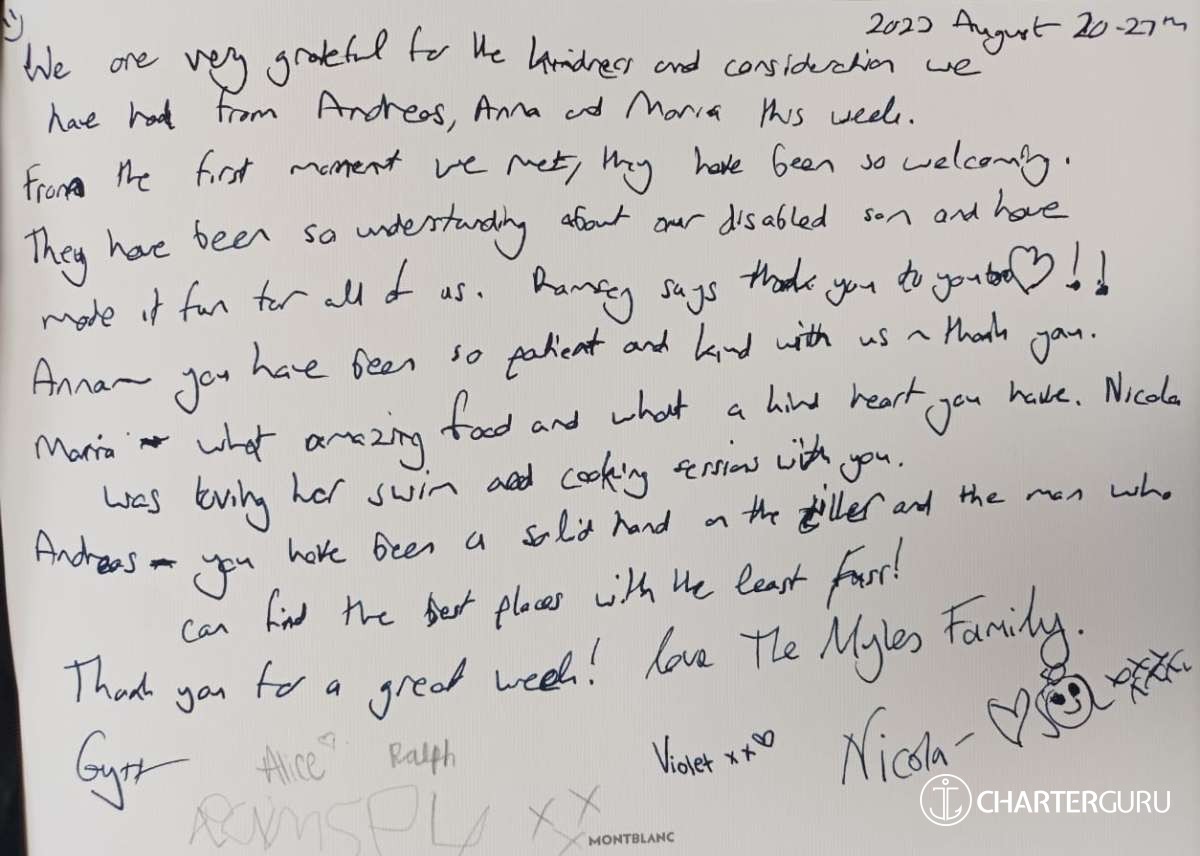 2023 August 20-27th
We are very grateful for the kindness and consideration we
have had from Andreas, Anna and Maria this week.
From the first moment we met, they have been so welcoming.
They have been so understanding about our disabled son and have
made it fun for all of us. Ramsey says thank you to you too♡!!
Anna~ you have been so patient and kind with us ~ thank you.
Maria ~ what amazing food and what a kind heart you have. Nicola
was loving her swim and cooking sessions with you.
Andreas ~ you have been a solid hand on the tiller and the man who
can find the best places with the least fuss!
Thank you for a great week! love The Myles Family.
Alice♡ Ralph Violet xx♡ Nicola~
xxx
MONTBLANC
CHARTERGURU